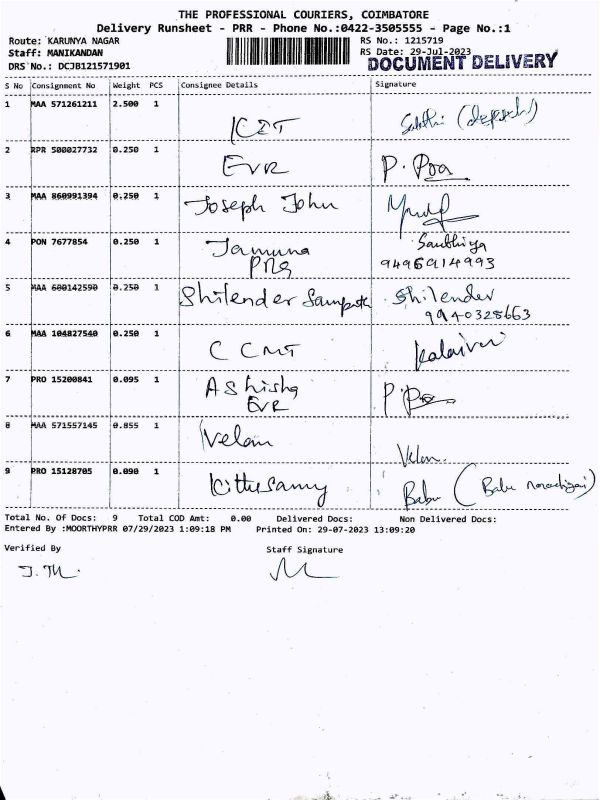 THE PROFESSIONAL COURIERS, COIMBATORE
Delivery Runsheet - PRR - Phone No.:0422-3505555 - Page No.:1
Route: KARUNYA NAGAR
Staff: MANIKANDAN
DRS No.: DCJB121571901
RS No.: 1215719
RS Date: 29-Jul-2023
DOCUMENT DELIVERY
S No Consignment No Weight PCS Consignee Details Signature
1 MAA 571261211 2.500 1
2 RPR 500027732 0.250 1 EVR
3 MAA 860991394 0.250 1 Joseph John
4 PON 7677854 0.250 1 Jamuna Sandhiya
PRG 9496914993
5 MAA 600142590 0.250 1 Shilender Sampath Shilender
9940328663
6 MAA 104827540 0.250 1 C CMT Kalaivai
7 PRO 15200841 0.095 1 AShisha
EVR
8 MAA 571557145 0.855 1 Velan Velan.
9 PRO 15128705 0.090 1 Kittusamy Babu (Babu
Total No. Of Docs: 9 Total COD Amt: 0.00 Delivered Docs: Non Delivered Docs:
Entered By :MOORTHYPRR 07/29/2023 1:09:18 PM Printed On: 29-07-2023 13:09:20
Verified By Staff Signature